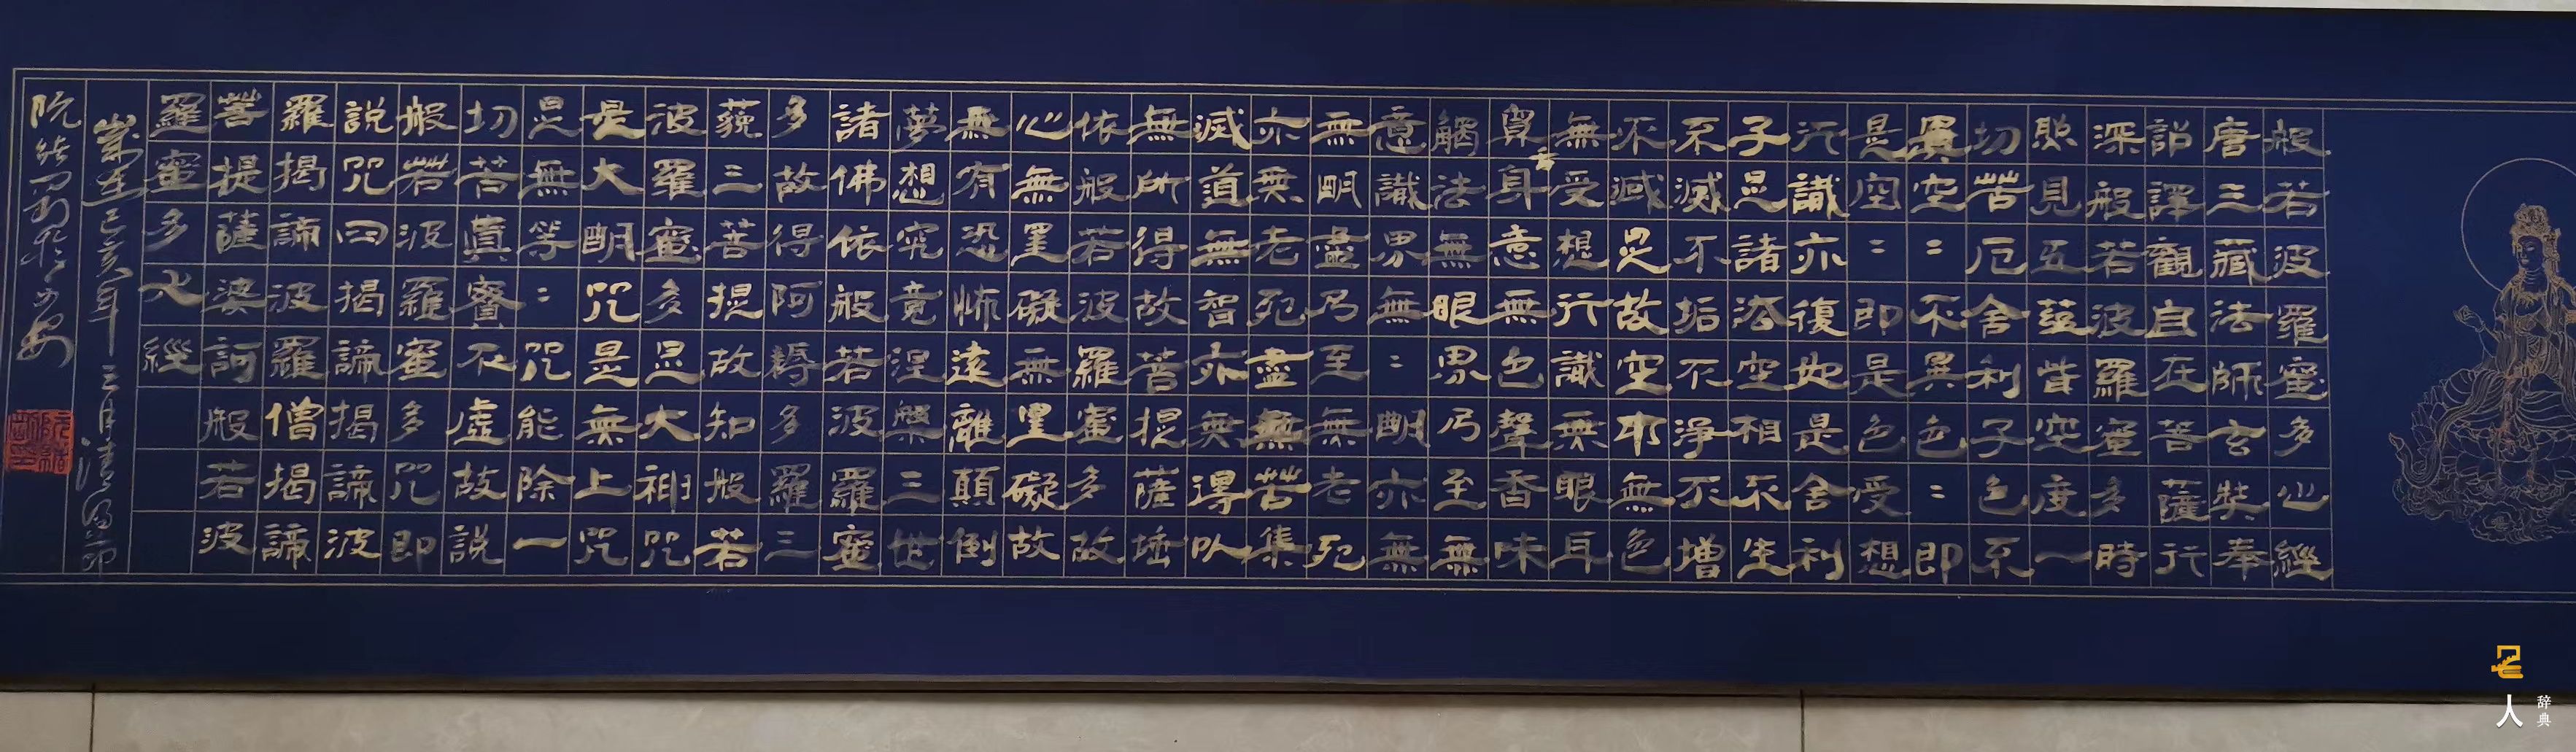 般若波羅蜜多心經
唐三藏法師玄奘奉
詔譯觀自在菩薩行
深般若波羅蜜多時
照見五蘊皆空度一
切苦厄舍利子色不
異空二不異色二即
是空二即是色受想
行識亦復如是舍利
子是諸法空相不生
不滅不垢不淨不增
不減是故空中無色
無受想行識無眼耳
鼻舌身意無色聲香味
觸法無眼界乃至無
意識界無二明亦無
無明盡乃至無老死
亦無老死盡無苦集
滅道無智亦無得以
無所得故菩提薩埵
依般若波羅蜜多故
心無罣礙無罣礙故
無有恐怖遠離顛倒
夢想究竟涅槃三世
諸佛依般若波羅蜜
多故得阿耨多羅三
藐三菩提故知般若
波羅蜜多是大神咒
是大明咒是無上咒
是無等二咒能除一
切苦真實不虛故說
般若波羅蜜多咒即
說咒曰揭諦揭諦波
羅揭諦波羅僧揭諦
菩提薩婆訶般若波
羅蜜多心經
歲在己亥年三月清明节
阮 於西安
人
辞典